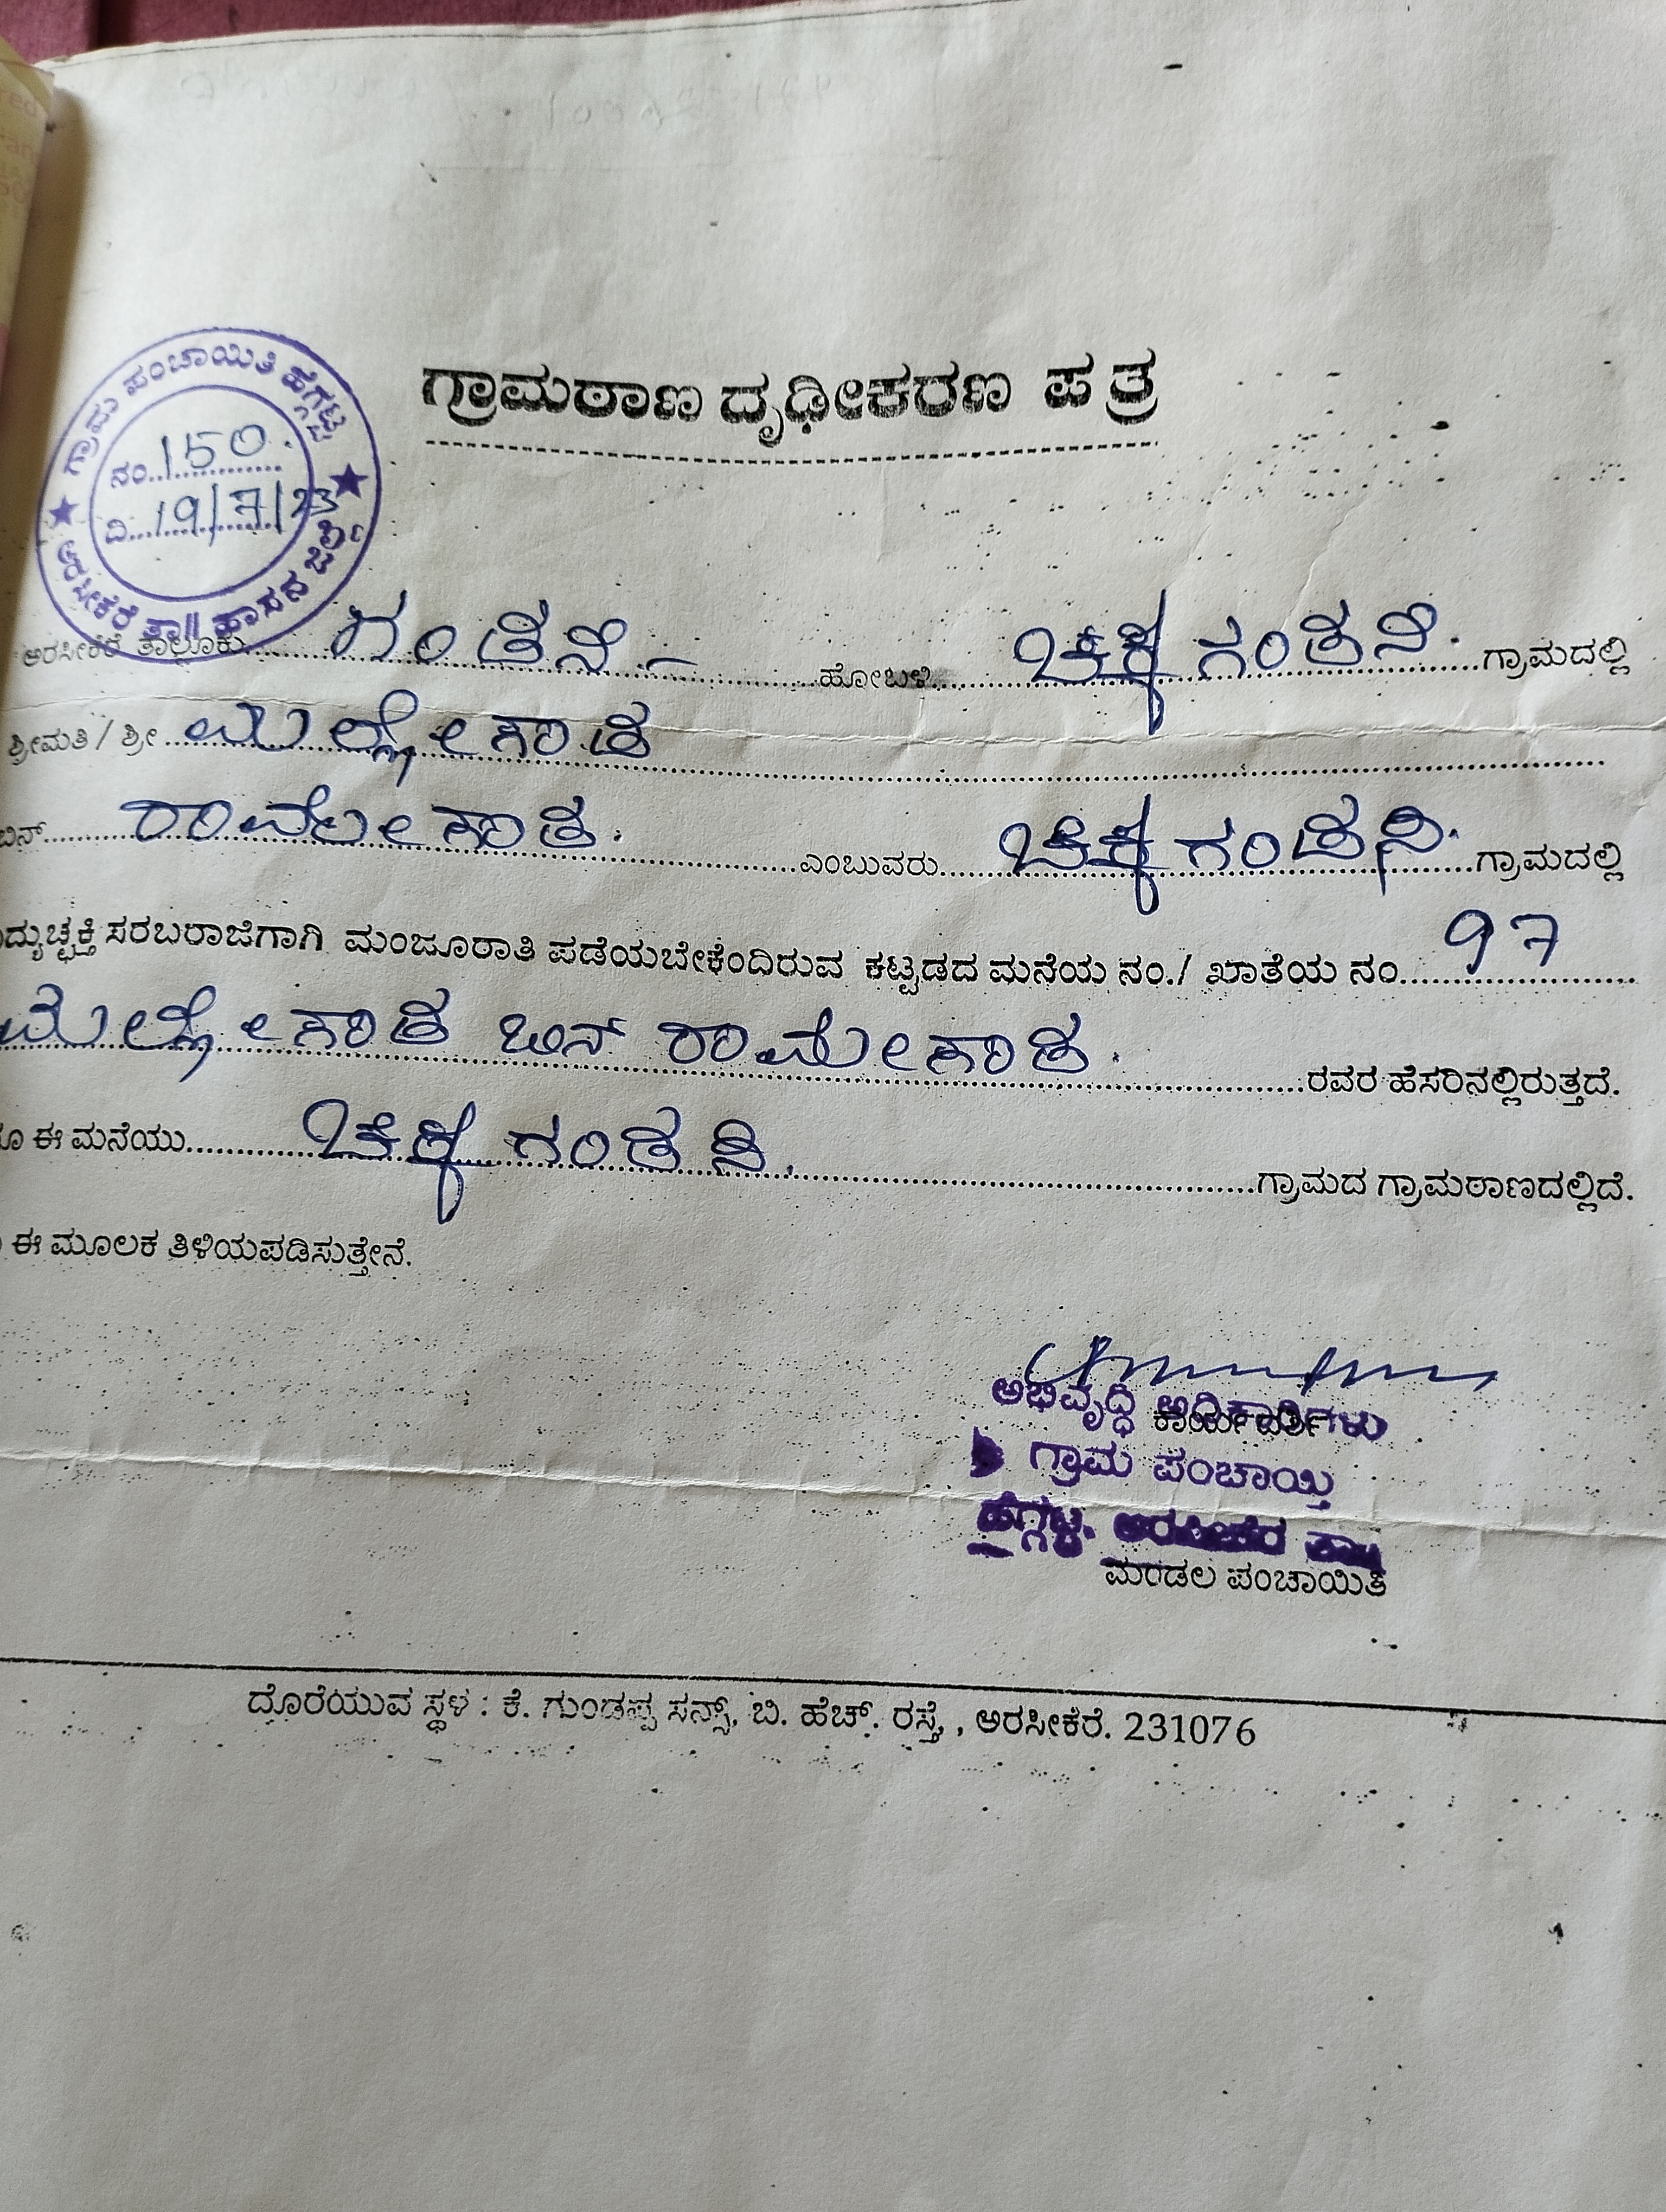 ಗ್ರಾಮಠಾಣ ದೃಢೀಕರಣ ಪತ್ರ
ಗ್ರಾಮ ಪಂಚಾಯಿತಿ ಹೆಗ್ಗಟ್ಟ
ನಂ. 150.
ದಿ. 19/7/23
ಅರಸೀಕೆರೆ ತಾ|| ಹಾಸನ ಜಿಲ್ಲೆ
ಅರಸೀಕೆರೆ ತಾಲ್ಲೂಕು ಗಂಡಸಿ - ಹೋಬಳಿ ಚಿಕ್ಕಗಂಡಸಿ. ಗ್ರಾಮದಲ್ಲಿ
ಶ್ರೀಮತಿ / ಶ್ರೀ ಮಲ್ಲೇಗೌಡ
ಬಿನ್ ರಾಮೇಗೌಡ. ಎಂಬುವರು ಚಿಕ್ಕಗಂಡಸಿ. ಗ್ರಾಮದಲ್ಲಿ
ದ್ಯುಚ್ಛಕ್ತಿ ಸರಬರಾಜಿಗಾಗಿ ಮಂಜೂರಾತಿ ಪಡೆಯಬೇಕೆಂದಿರುವ ಕಟ್ಟಡದ ಮನೆಯ ನಂ./ ಖಾತೆಯ ನಂ. 97
ಮಲ್ಲೇಗೌಡ ಬಿನ್ ರಾಮೇಗೌಡ. ರವರ ಹೆಸರಿನಲ್ಲಿರುತ್ತದೆ.
ಈ ಮನೆಯು ಚಿಕ್ಕಗಂಡಸಿ. ಗ್ರಾಮದ ಗ್ರಾಮಠಾಣದಲ್ಲಿದೆ.
ಈ ಮೂಲಕ ತಿಳಿಯಪಡಿಸುತ್ತೇನೆ.
ಅಭಿವೃದ್ಧಿ ಅಧಿಕಾರಿಗಳು
ಕಾರ್ಯದರ್ಶಿ
ಗ್ರಾಮ ಪಂಚಾಯ್ತಿ
ಹೆಗ್ಗಟ್ಟ. ಅರಸೀಕೆರೆ ತಾ||
ಮಂಡಲ ಪಂಚಾಯಿತಿ
ದೊರೆಯುವ ಸ್ಥಳ : ಕೆ. ಗುಂಡಪ್ಪ ಸನ್ಸ್, ಬಿ. ಹೆಚ್. ರಸ್ತೆ, , ಅರಸೀಕೆರೆ. 231076